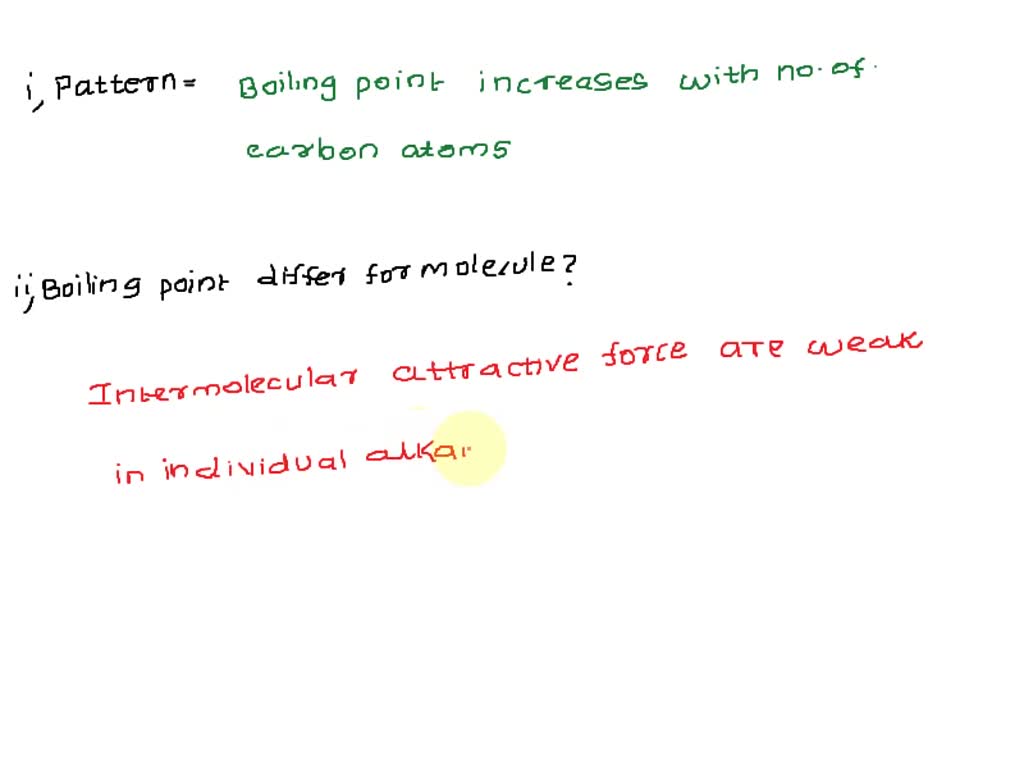 i, Pattern = Boiling point increases with no. of.
carbon atoms
ii, Boiling point differ for molecule?
Intermolecular attractive force are weak
in individual alkan